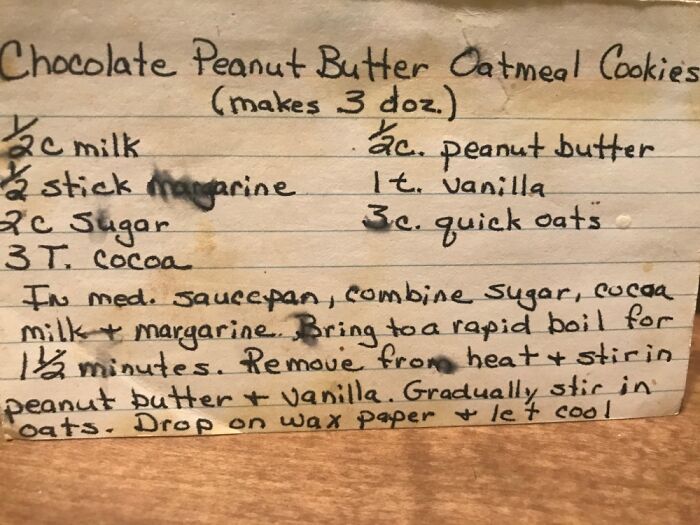 Chocolate Peanut Butter Oatmeal Cookies
(makes 3 doz.)
1/2 c milk
1/2 stick margarine
2 c sugar
3 T. cocoa
1/2 c. peanut butter
1 t. vanilla
3 c. quick oats
In med. saucepan, combine sugar, cocoa
milk + margarine. Bring to a rapid boil for
1 1/2 minutes. Remove from heat + stir in
peanut butter + vanilla. Gradually stir in
oats. Drop on wax paper + let cool